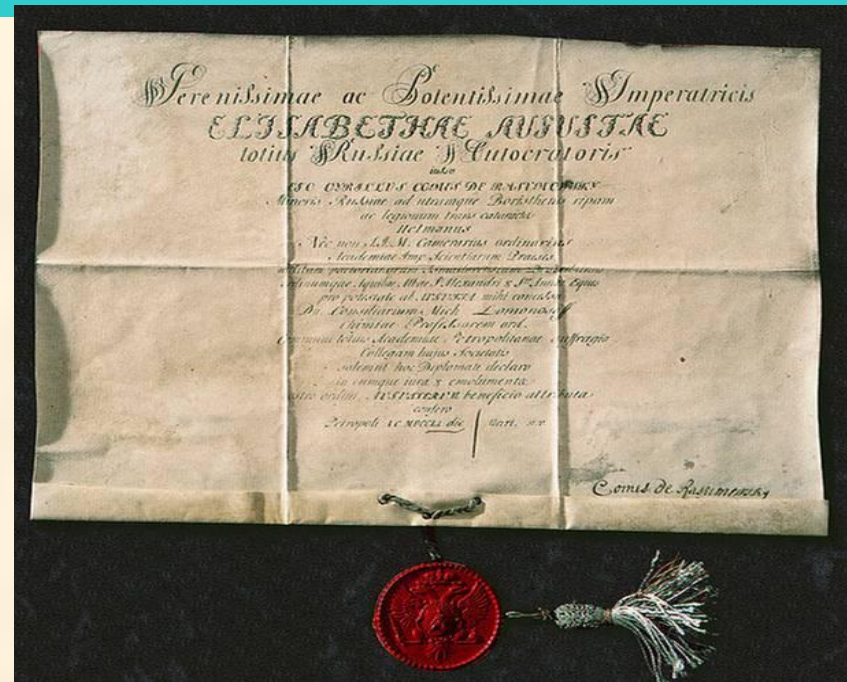 Serenissimae ac Potentissimae Imperatricis
ELISABETHAE AUGUSTAE
totius Russiae Autocratoris
iussu
EGO CYRILLUS COMES DE RASUMOWSKY
Minoris Russiae ad utramque Boristhenis ripam
ac legionum trans cataracta
Hetmanus
Nec non S.I.M. Camerarius ordinarius
Academiae Imp. Scientiarum Praeses
Aquilae Albae S. Alexandri & Stae Annae Eques
pro potestate ab AUGUSTA mihi concessa
Dn. Consiliarium Mich Lomonosoff
Chimiae Professorem ord.
Communi totius Academiae Petropolitanae suffragio
Collegam hujus Societatis
solemni hoc Diplomate declaro
in eumque iura & emolumenta
ordini AUGUSTAE beneficio attributa
confero
Petropoli die
Comes de Rasumowsky